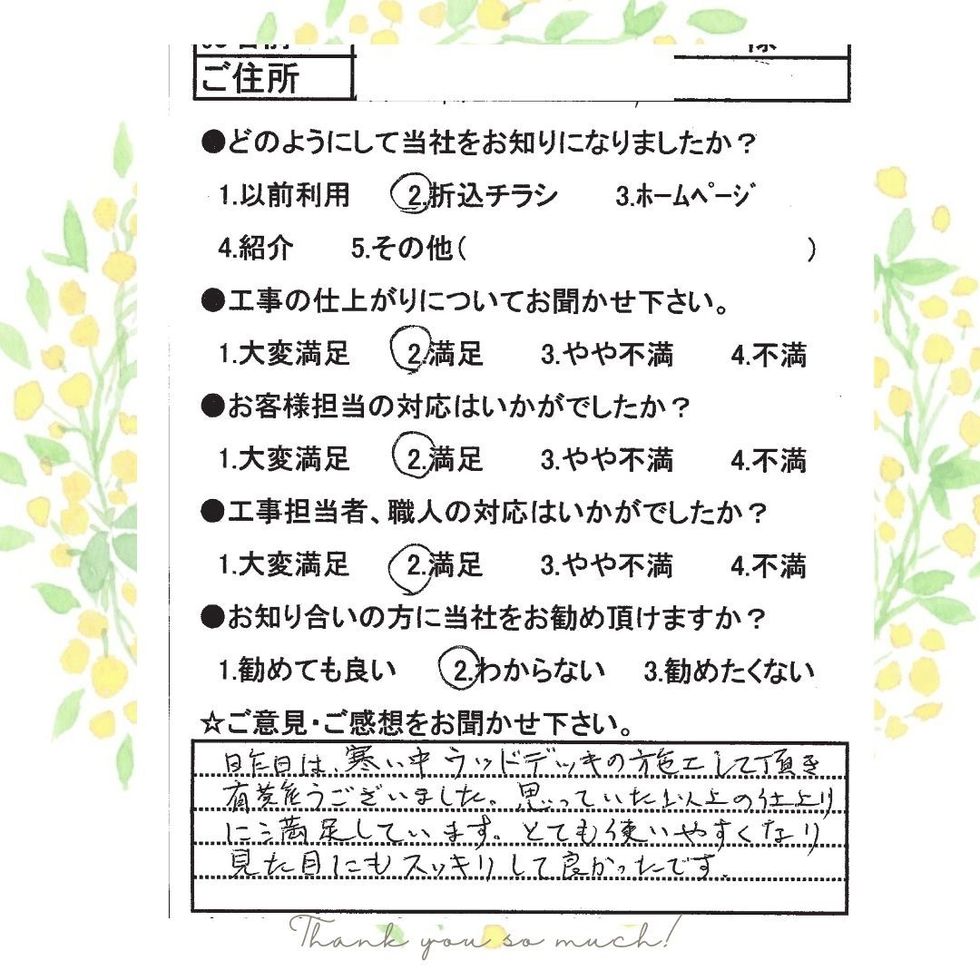 ご住所
●どのようにして当社をお知りになりましたか？
1.以前利用 2.折込チラシ 3.ホームページ
4.紹介 5.その他( )
●工事の仕上がりについてお聞かせ下さい。
1.大変満足 2.満足 3.やや不満 4.不満
●お客様担当の対応はいかがでしたか？
1.大変満足 2.満足 3.やや不満 4.不満
●工事担当者、職人の対応はいかがでしたか？
1.大変満足 2.満足 3.やや不満 4.不満
●お知り合いの方に当社をお勧め頂けますか？
1.勧めても良い 2.わからない 3.勧めたくない
☆ご意見・ご感想をお聞かせ下さい。
昨日は、寒い中ウッドデッキの施工して頂き
有難うございました。思っていた以上の仕上り
に満足しています。とても使いやすくなり
見た目にもスッキリして良かったです。
Thank you so much!